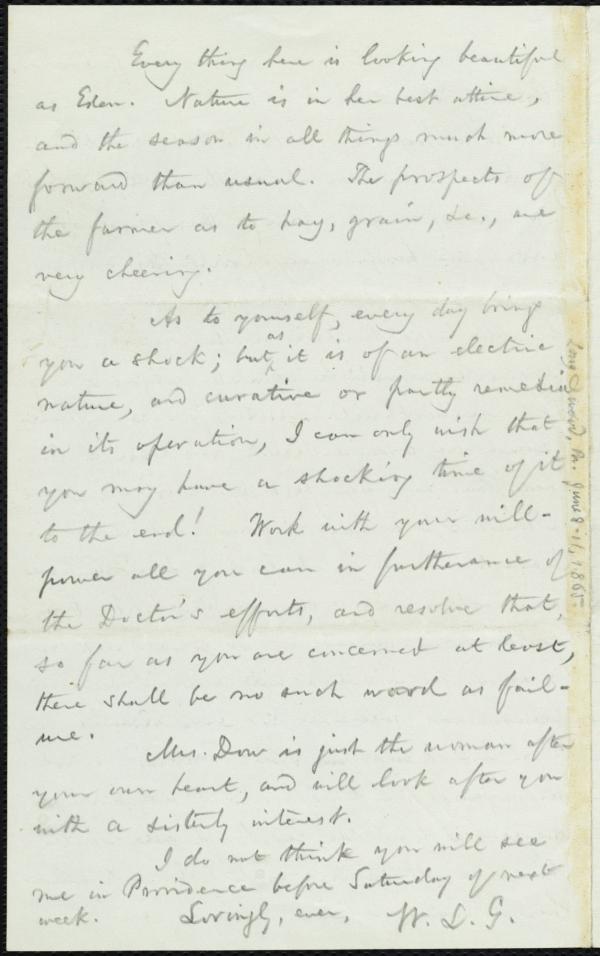 Every thing here is looking beautiful
as Eden. Nature is in her best attire,
and the season in all things much more
forward than usual. The prospects of
the farmer as to hay, grain, &c., are
very cheering.
As to yourself, every day brings
you a shock; but as it is of an electric
nature, and curative or partly remedial
in its operation, I can only wish that
you may have a shocking time of it
to the end! Work with your will-
power all you can in furtherance of
the Doctor's efforts, and resolve that,
so far as you are concerned at least,
there shall be no such word as fail-
ure.
Mrs. Dow is just the woman after
your own heart, and will look after you
with a sisterly interest.
I do not think you will see
me in Providence before Saturday of next
week. Lovingly, ever, W. L. G.
June 8-11, 1865.